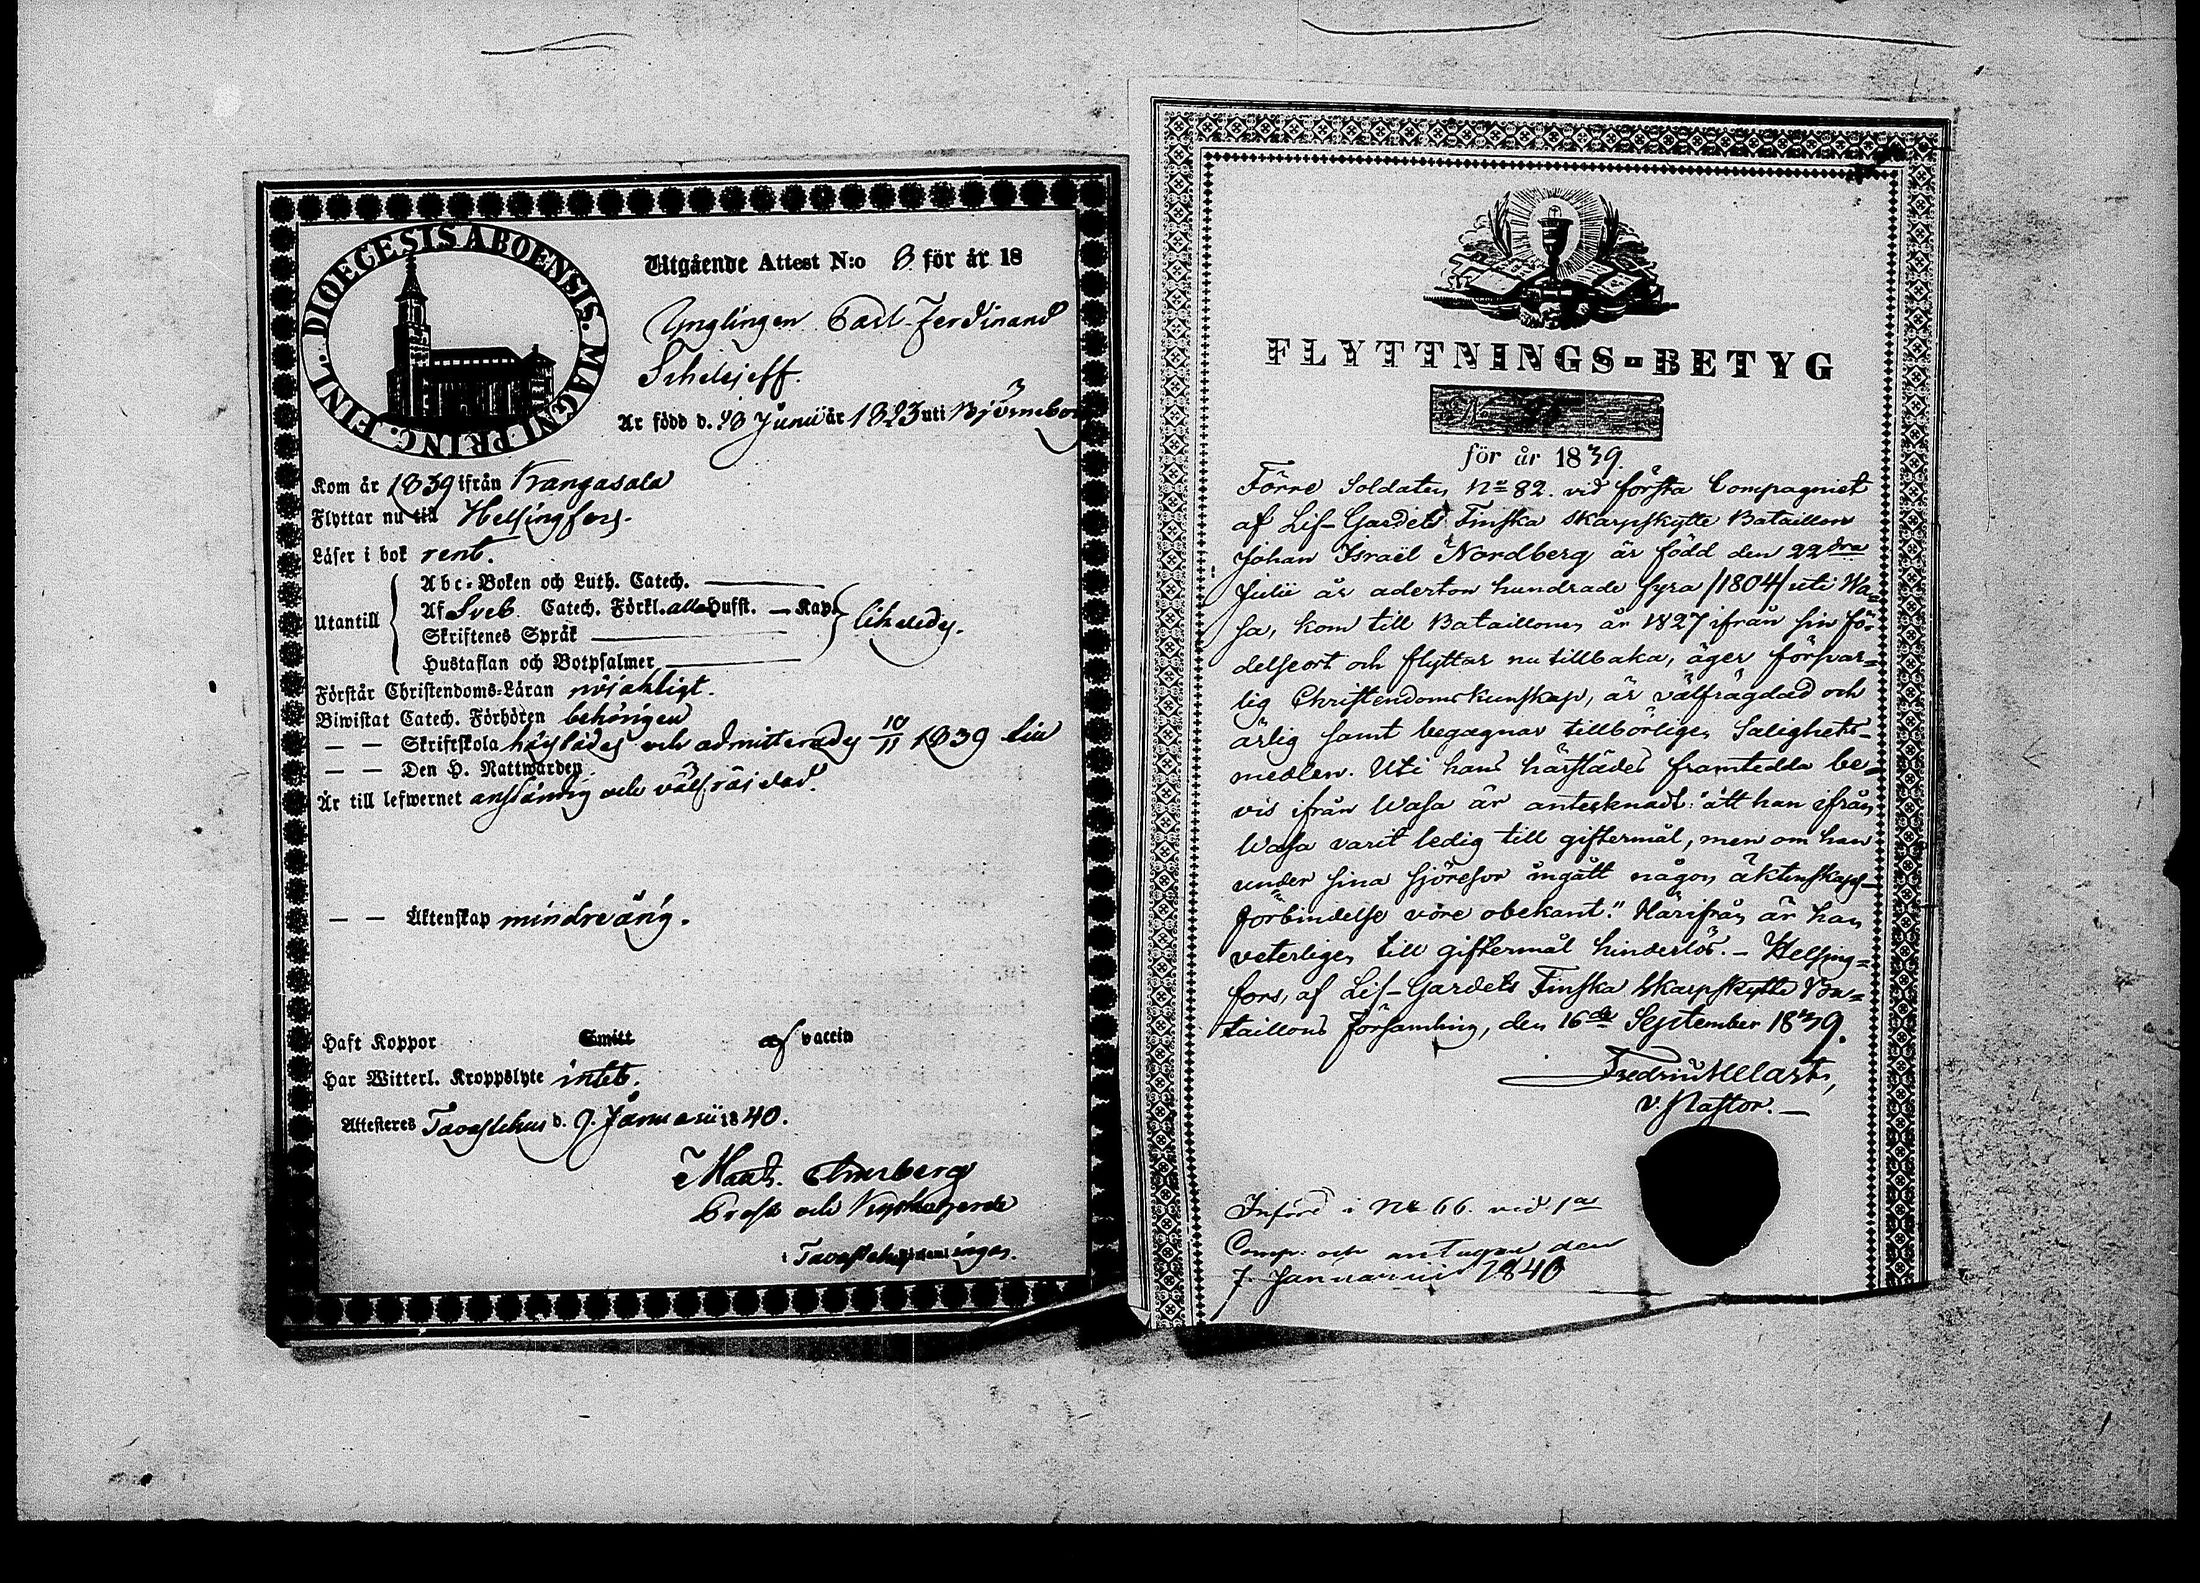 DIOECESIS ABOENSIS. MAGNI PRINC. FINL.
Utgående Attest N:o 8 för år 18
Ynglingen Carl Ferdinand
Är född d. Junii år 1823 uti Björneborg
Kom år 1839 ifrån Kangasala
Flyttar nu till Helsingfors.
Läser i bok rent.
Utantill
Abc-Boken och Luth. Catech.
Af Sveb. Catech. Förkl. alla Hufst. — Kap.
Skriftenes Språk
Hustaflan och Botpsalmer
likaledes.
Förstår Christendoms-Läran nöjaktigt.
Biwistat Catech. Förhören behörigen
— — Skriftskola härstädes och admitterades 10/11 1839 till
— — Den H. Nattwarden
Är till lefwernet anständig och välfräjdad.
— — Äktenskap minderårig.
Haft Koppor Smitt af vaccin
Har Witterl. Kroppslyte intet.
Attesteres Tavastehus d. 9. Januarii 1840.
Prost och Kyrkoherde
i Tavastehus församlingar.
FLYTTNINGS-BETYG
No
för år 1839.
Förre Soldaten No 82. vid första Compagniet
af Lif-Gardets Finska Skarpskytte Bataillon
Johan Israël Nordberg är född den 22dra
Julii år aderton hundrade fyra /1804/ uti Wa=
sa, kom till Bataillonen år 1827 ifrån sin fö=
delseort och flyttar nu tillbaka, äger försvar=
lig Christendomskunskap, är välfrägdad och
ärlig samt begagnar tillbörligen Salighets-
medlen. Uti hans härstädes framtedda be=
vis ifrån Wasa är antecknadt: "att han ifrån
Wasa varit ledig till giftermål, men om han
under sina sjöresor ingått någon äktenskaps-
förbindelse vore obekant." Härifrån är han
veterligen till giftermål hinderlös. - Helsing=
fors, af Lif-Gardets Finska Skarpskytte Ba=
taillons Församling, den 16de September 1839.
v. Pastor. —
Införd i No 66. vid 1a
Comp: och antagen den
7. Januarii 1840